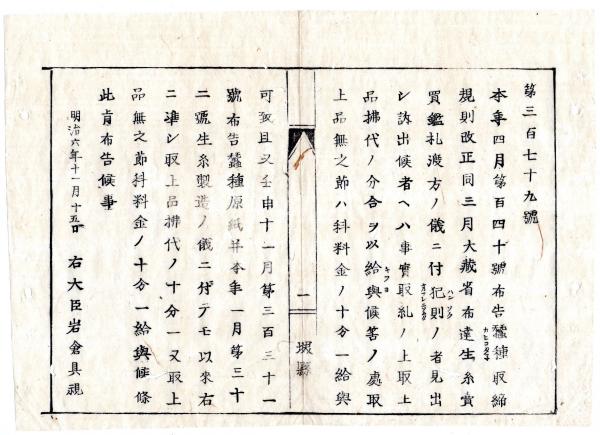 第三百七十九號
本年四月第百四十號布告蠶種取締
カヒコタネ
規則改正同三月大藏省布達生糸賣
買鑑札渡方ノ儀ニ付犯則ノ者見出
ハンソク
シ訴出候者ヘハ事實取糺ノ上取上
品拂代ノ分合ヲ以給與候筈ノ處取
キフヨ
上品無之節ハ科料金ノ十分一給與
一
堺縣
可致且又壬申十一月第三百三十一
號布告蠶種原紙并本年一月第三十
二號生糸製造ノ儀ニ付テモ以來右
ニ準シ取上品拂代ノ十分一又取上
品無之節科料金ノ十分一給與候條
此旨布告候事
明治六年十一月十五日
右大臣岩倉具視